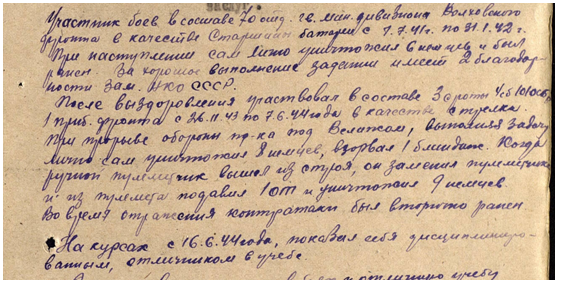 Участник боев в составе 70 отд. гв. мин. дивизиона Волховского
фронта в качестве Старшины батареи с 7.7.41г. по 31.1.42г.
При наступлении сам лично уничтожил 8 немцев и был
ранен. За хорошое выполнение задачи имеет 2 благодар-
ности Зам. НКО СССР.
После выздоровления участвовал в составе 3 роты
1 приб. фронта с 26.11.43 по 7.6.44 года в качестве стрелка.
При прорыве обороны пр-ка под выполняя задачу
лично сам уничтожил 8 немцев, взорвал 1 блиндаж. Когда
ручной пулеметчик вышел из строя, он заменил пулеметчика
и из пулемета подавил 1 от и уничтожил 9 немцев.
Во время отражения контратаки был вторично ранен.
На курсах с 16.6.44 года, показал себя дисциплиниро-
ванным, отличником в учебе.
отличную учебу